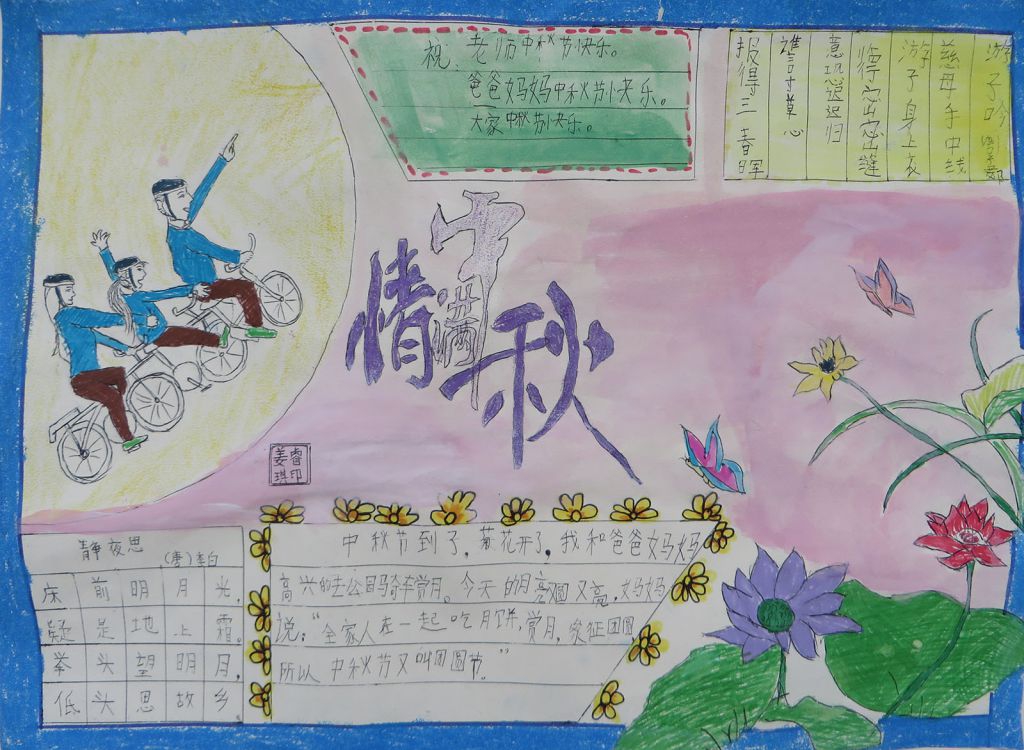 祝:老师中秋节快乐。
爸爸妈妈中秋节快乐。
大家中秋节快乐。
游子吟
慈母手中线
游子身上衣
临行密密缝
意恐迟迟归
谁言寸草心
报得三春晖
中秋
情满
姜睿琪印
静夜思
(唐)李白
床前明月光,
疑是地上霜。
举头望明月,
低头思故乡
中秋节到了,菊花开了,我和爸爸妈妈
高兴的去公园骑车赏月。今天的月亮圆又亮,妈妈
说:“全家人在一起吃月饼,赏月,象征团圆
所以中秋节又叫团圆节。”